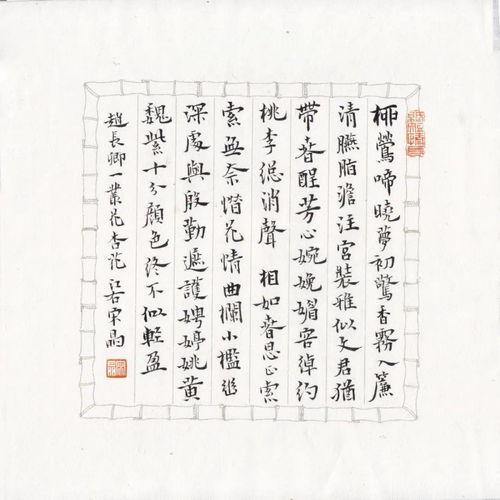 柳鶯啼曉夢初驚香霧入簾
清臙脂澹注宮裝雅似文君猶
帶春醒芳心婉娩媚容綽約
桃李總消聲 相如春思正索
索無奈惜花情曲欄小檻幽
深處與殷勤遮護娉婷姚黃
魏紫十分顏色終不似輕盈
趙長卿一叢花杏花 江右宋晶